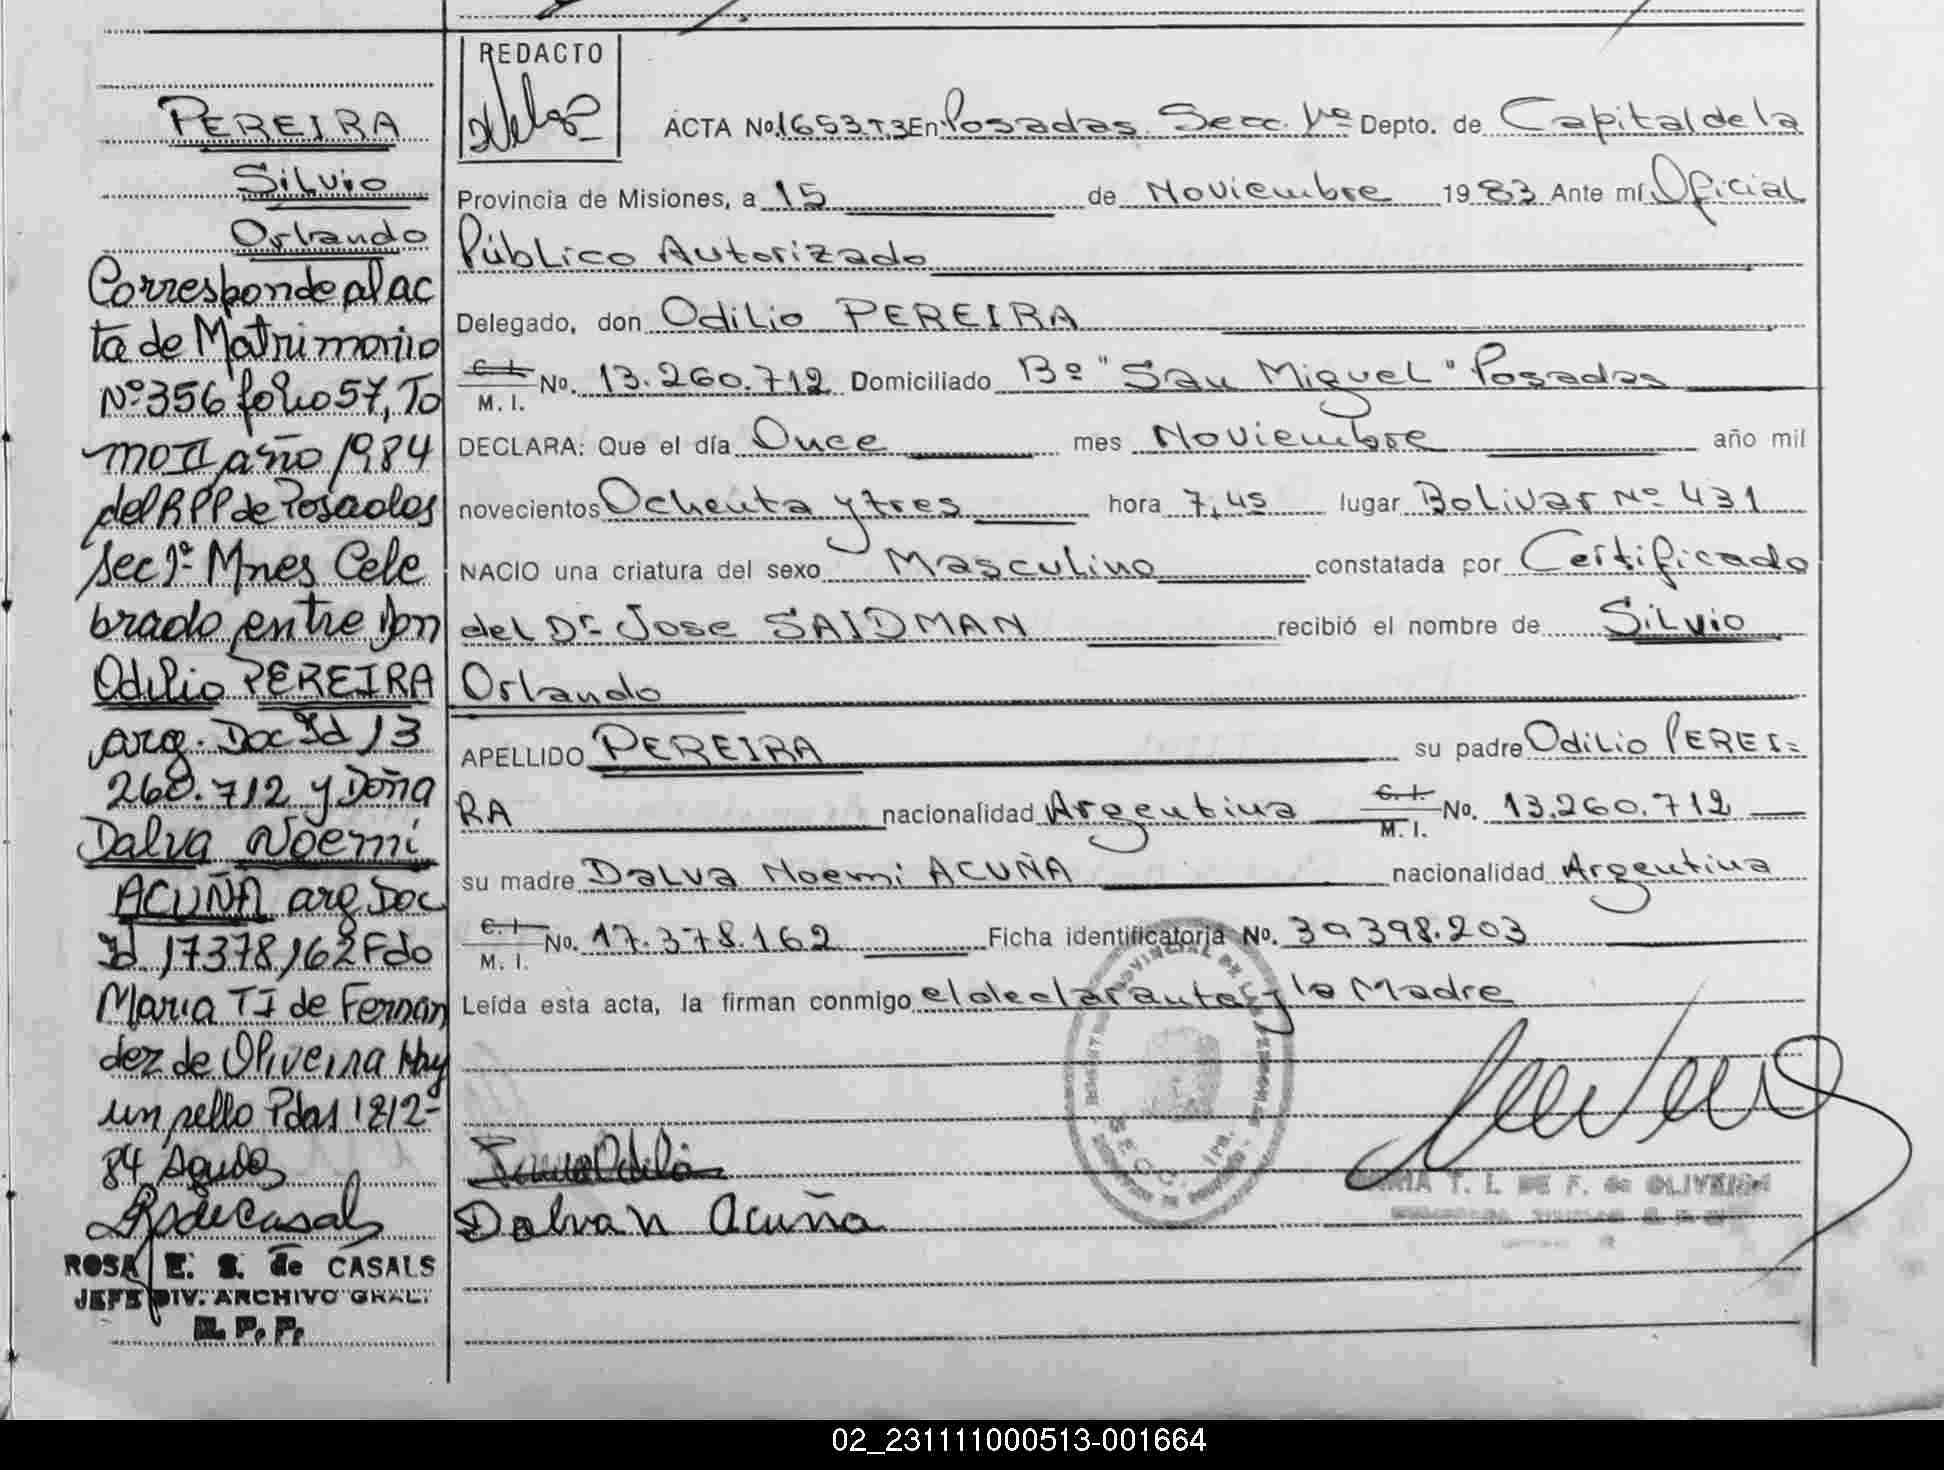 PEREIRA
Silvio
Orlando
Correspondealac
ta de Matrimonio
Nº356 folio57, To
moII año 1984
del RPP de Posadas
Sec 1ª Mnes Cele
brado entre Don
Odilio PEREIRA
arg. Doc Id 13
260.712 y Doña
Dalva Noemi
ACUÑA arg Doc
Id 17378162 Fdo
Maria T I de Fernan
dez de Oliveira Hay
un sello Pdas 1212-
84
ROSA E. S. de CASALS
JEFE DIV. ARCHIVO GRAL.
R. P. P.
REDACTO
ACTA No. 1653.T3 En Posadas. Secc. 1ª Depto. de Capital de la
Provincia de Misiones, a 15 de Noviembre 1983 Ante mí Oficial
Público Autorizado
Delegado, don Odilio PEREIRA
C. I.
M. I. No. 13.260.712 Domiciliado Bº "San Miguel" Posadas
DECLARA: Que el día Once mes Noviembre año mil
novecientos Ochenta y tres hora 7,45 lugar Bolivar Nº 431
NACIO una criatura del sexo Masculino constatada por Certificado
del Dr. Jose SAIDMAN recibió el nombre de Silvio
Orlando
APELLIDO PEREIRA su padre Odilio PEREI=
RA nacionalidad Argentina C. I.
M. I. No. 13.260.712
su madre Dalva Noemi ACUÑA nacionalidad Argentina
C. I.
M. I. No. 17.378.162 Ficha identificatoria No. 30.398.203
Leída esta acta, la firman conmigo el declarante y la Madre
Dalva N Acuña
MARIA T. I. DE F. de OLIVEIRA
02_231111000513-001664